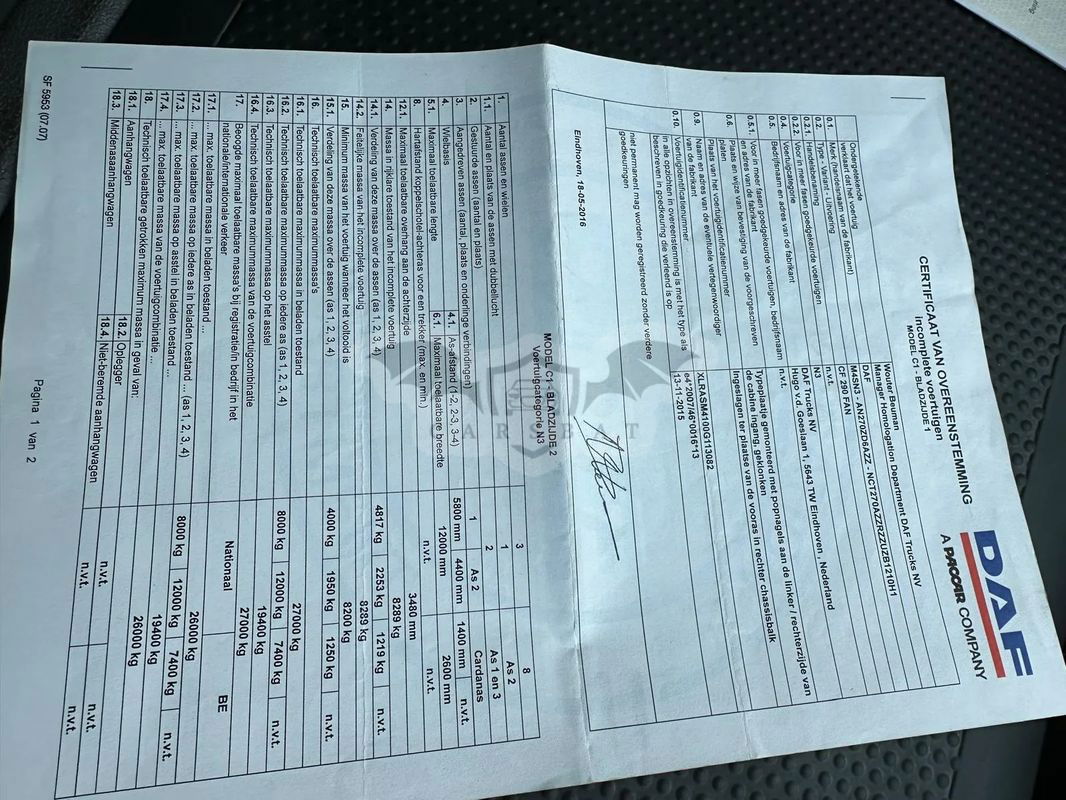 DAF
A PACCAR COMPANY
CERTIFICAAT VAN OVEREENSTEMMING
Incomplete voertuigen
MODEL C1 - BLADZIJDE 1
Ondergetekende Wouter Beuman
Manager Homologation Department DAF Trucks NV
verklaart dat het voertuig
0.1. Merk (handelsnaam van de fabrikant) DAF
0.2. Type - Variant - Uitvoering M4SN3 - AN270ZD6AZZ - NCT270AZZRZZUZB1210H1
0.2.1. Handelsbenaming CF 290 FAN
0.2.2. Voor in meer fasen goedgekeurde voertuigen n.v.t.
0.4. Voertuigcategorie N3
0.5. Bedrijfsnaam en adres van de fabrikant DAF Trucks NV
Hugo v.d. Goeslaan 1, 5643 TW Eindhoven, Nederland
0.5.1. Voor in meer fasen goedgekeurde voertuigen, bedrijfsnaam n.v.t.
en adres van de fabrikant
0.6. Plaats en wijze van bevestiging van de voorgeschreven Typeplaatje gemonteerd met popnagels aan de linker / rechterzijde van
platen de cabine ingang, geklonken
Plaats van het voertuigidentificatienummer Ingeslagen ter plaatse van de vooras in rechter chassisbalk
0.9. Naam en adres van de eventuele vertegenwoordiger
van de fabrikant
0.10. Voertuigidentificatienummer XLRASM4100G113082
in alle opzichten in overeenstemming is met het type als e4*2007/46*0016*13
beschreven in goedkeuring die verleend is op 13-11-2015
niet permanent mag worden geregistreerd zonder verdere
goedkeuringen
Eindhoven, 18-05-2016
MODEL C1 - BLADZIJDE 2
Voertuigcategorie N3
1. Aantal assen en wielen 3 8
1.1. Aantal en plaats van de assen met dubbellucht 1 As 2
2. Gestuurde assen (aantal en plaats) 2 As 1 en 3
3. Aangedreven assen (aantal, plaats en onderlinge verbindingen) 1 As 2 Cardanas
4. Wielbasis 4.1. As-afstand (1-2, 2-3, 3-4) 5800 mm 4400 mm 1400 mm n.v.t.
5.1. Maximaal toelaatbare lengte 6.1. Maximaal toelaatbare breedte 12000 mm 2600 mm
8. Hartafstand koppelschotel-achteras voor een trekker (max. en min.) n.v.t. n.v.t.
12.1. Maximaal toelaatbare overhang aan de achterzijde 3480 mm
14. Massa in rijklare toestand van het incomplete voertuig 8289 kg
14.1. Verdeling van deze massa over de assen (as 1, 2, 3, 4) 4817 kg 2253 kg 1219 kg n.v.t.
14.2. Feitelijke massa van het incomplete voertuig 8289 kg
15. Minimum massa van het voertuig wanneer het voltooid is 8200 kg
15.1. Verdeling van deze massa over de assen (as 1, 2, 3, 4) 4000 kg 1950 kg 1250 kg n.v.t.
16. Technisch toelaatbare maximummassa's
16.1. Technisch toelaatbare maximummassa in beladen toestand 27000 kg
16.2. Technisch toelaatbare maximummassa op iedere as (as 1, 2, 3, 4) 8000 kg 12000 kg 7400 kg n.v.t.
16.3. Technisch toelaatbare maximummassa op het asstel 19400 kg
16.4. Technisch toelaatbare maximummassa van de voertuigcombinatie 27000 kg
17. Beoogde maximaal toelaatbare massa's bij registratie/in bedrijf in het Nationaal BE
nationale/internationale verkeer
17.1. ... max. toelaatbare massa in beladen toestand ... 26000 kg
17.2. ... max. toelaatbare massa op iedere as in beladen toestand ... (as 1, 2, 3, 4) 8000 kg 12000 kg 7400 kg n.v.t.
17.3. ... max. toelaatbare massa op asstel in beladen toestand ... 19400 kg
17.4. ... max. toelaatbare massa van de voertuigcombinatie ... 26000 kg
18. Technisch toelaatbare getrokken maximum massa in geval van:
18.1. Aanhangwagen 18.2. Oplegger n.v.t. n.v.t.
18.3. Middenasaanhangwagen 18.4. Niet-beremde aanhangwagen n.v.t. n.v.t.
SF 5953 (07.07)
Pagina 1 van 2
CARSBAT